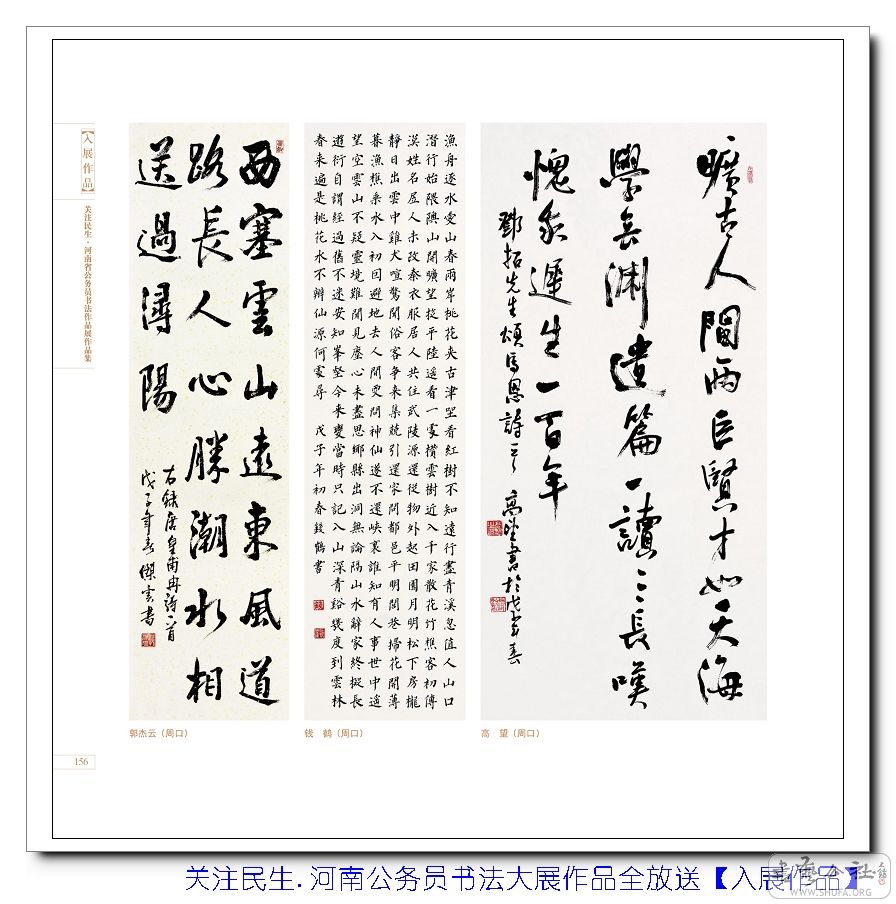 【入展作品】
关注民生·河南省公务员书法作品展作品集
曠古人間兩巨賢才如天海
學無淵遺篇一讀三長嘆
愧我遲生一百年
鄧拓先生頌馬恩詩之 高望書於戊子年春
漁舟逐水愛山春兩岸桃花夾古津坐看紅樹不知遠行盡青溪忽值人山口
潛行始隈隩山開曠望旋平陸遥看一處攢雲樹近入千家散花竹樵客初傳
漢姓名居人未改秦衣服居人共住武陵源還從物外起田園月明松下房櫳
靜日出雲中雞犬喧驚聞俗客争来集競引還家問都邑平明閭巷掃花開薄
暮漁樵乘水入初因避地去人間更問神仙遂不還峽裏誰知有人事世中遥
望空雲山不疑靈境難聞見塵心未盡思鄉縣出洞無論隔山水辭家終擬長
遊衍自謂經過舊不迷安知峯壑今来變當時只記入山深青谿幾度到雲林
春来遍是桃花水不辨仙源何處尋 戊子年初春錢鶴書
西塞雲山遠東風道
路長人心勝潮水相
送過潯陽
右録唐皇甫冉詩一首
戊子年春傑雲書
郭杰云（周口）
钱 鹤（周口）
高 望（周口）
156
关注民生.河南公务员书法大展作品全放送【入展作品】
WWW.SHUFA.ORG